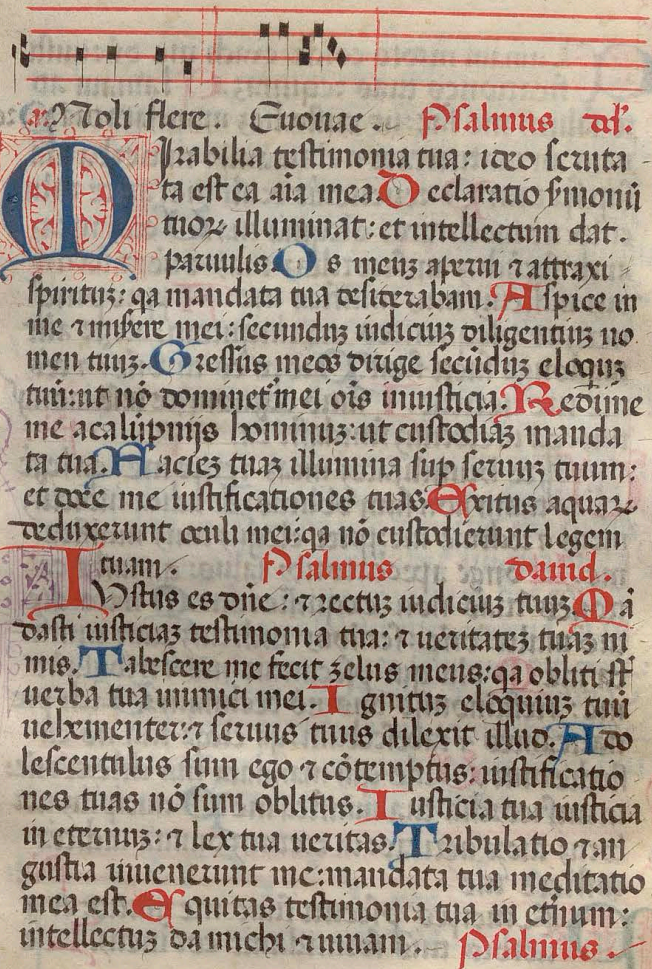 a. Noli flere. Euouae. Psalmus dd'.
MIrabilia testimonia tua: ideo scruta
ta est ea aīa mea. Declaratio s̄monū
tuoꝝ illuminat: et intellectum dat
paruulis. Os meuꝫ aperui ⁊ attraxi
spirituꝫ: qa mandata tua desiderabam. Aspice in
me ⁊ misere mei: secunduꝫ iudiciuꝫ diligentiuꝫ no
men tuuꝫ. Gressus meos dirige secūduꝫ eloquꝫ
tuū: ut nō dominet' mei oīs iniusticia. Redime
me a calūpnijs hominuꝫ: ut custodiaꝫ manda
ta tua. Facieꝫ tuaꝫ illumina suꝑ seruuꝫ tuum:
et doce me iustificationes tuas. Exitus aquaꝝ
deduxerunt oculi mei: qa nō custodierunt legem
tuam. Psalmus dauid.
IVstus es dn̄e: ⁊ rectuꝫ iudiciuꝫ tuuꝫ. Mā
dasti iusticiaꝫ testimonia tua: ⁊ ueritateꝫ tuaꝫ ni
mis. Tabescere me fecit zelus meus: qa obliti st̄
uerba tua inimici mei. Ignituꝫ eloquiuꝫ tuū
uehementer: ⁊ seruus tuus dilexit illud. Ado
lescentulus sum ego ⁊ cōtemptus: iustificatio
nes tuas nō sum oblitus. Iusticia tua iusticia
in eternuꝫ: ⁊ lex tua ueritas. Tribulatio ⁊ an
gustia inuenerunt me: mandata tua meditatio
mea est. Equitas testimonia tua in et̄num:
intellectuꝫ da michi ⁊ uiuam. Psalmus.